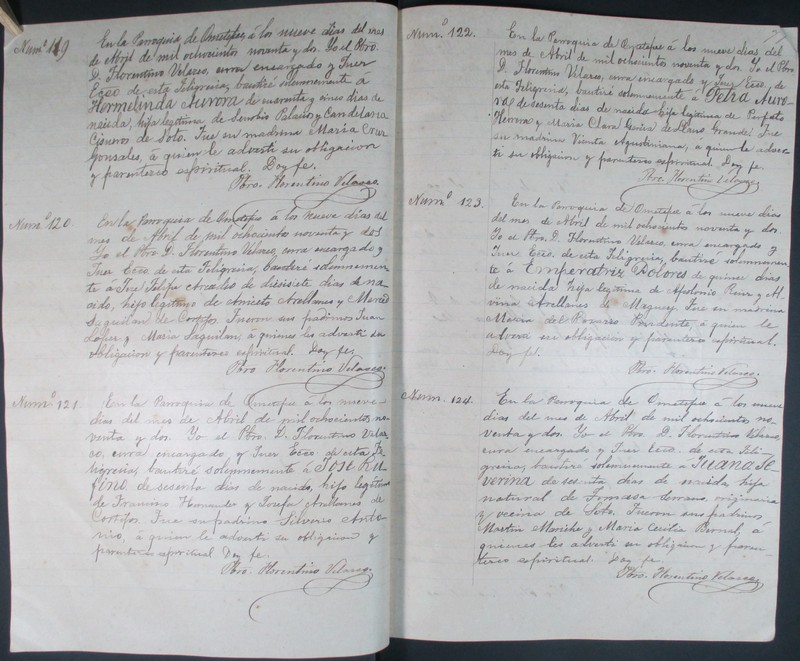 Num.º 119
En la Parroquia de Ometepe á los nueve dias del mes
de Abril de mil ochocientos noventa y dos. Yo el Pbro.
D. Florentino Velasco, cura encargado y Juez
Ecco de esta feligrecia, bautizé solemnemente á
Hermelinda Aurora de cuarenta y cinco dias de
nacida, hija legitima de Eusebio Palacio y Candelaria
Cisneros de Soto. Fue su madrina Maria Cruz
Gonsales, á quien le adverti su obligacion
y parentezco espiritual. Doy fe.
Pbro. Florentino Velasco
Num.º 120
En la Parroquia de Ometepe á los nueve dias del
mes de Abril de mil ochociento noventa y dos
Yo el Pbro D. Florentino Velasco, cura encargado y
Juez Ecco de esta feligrecia, bautizé solemnemen
te á José Felipe de diesisiete dias de na
cido, hijo legitimo de Aniceto Arellanes y
de Cortijos. Fueron sus padrinos Juan
Lopez y Maria Saguilan, á quienes les adverti su
obligacion y parentezco espiritual. Doy fe.
Pbro Florentino Velasco
Num.º 121
En la Parroquia de Ometepe á los nueve
dias del mes de Abril de mil ochocientos no
venta y dos. Yo el Pbro. D. Florentino Velas
co, cura encargado y Juez Ecco de esta fe
ligrecia, bautizé solemnemente á José Ru
fino de sesenta dias de nacido, hijo legitimo
de Francisco Hernandez y Josefa Arellanes de
Cortijos. Fue su padrino Silverio Anto
nio, á quien le adverti su obligacion y
parentezco espiritual Doy fe.
Pbro. Florentino Velasco.
Num.º 122.
En la Parroquia de Ometepe á los nueve dias del
mes de Abril de mil ochocientos noventa y dos. Yo el Pbro
D. Florentino Velasco, cura encargado y Juez Ecco. de
esta feligrecia, bautizé solemnemente á Petra Auro
ra de sesenta dias de nacida hija legitima de Porfirio
Herrera y Maria Clara de Llano Grande. Fue
su madrina, a quien le adver
ti su obligacion y parentezco espiritual. Doy fe.
Pbro. Florentino Velasco
Num.º 123.
En la Parroquia de Ometepe á los nueve dias
del mes de Abril de mil ochocientos noventa y dos.
Yo el Pbro. D. Florentino Velasco, cura encargado y
Juez Ecco. de esta feligrecia, bautizé solemnemen
te á Emperatriz Dolores de quince dias
de nacida hija legitima de Apolonio y El
vira Arellanes de Maguey. Fue su madrina
Maria del Rosario, á quien le
adverti su obligacion y parentezco espiritual.
Doy fe.
Pbro. Florentino Velasco.
Num. 124.
En la Parroquia de Ometepe á los nueve
dias del mes de Abril de mil ochocientos no
venta y dos. Yo el Pbro. D. Florentino Velasco,
cura encargado y Juez Ecco. de esta feli-
grecia, bautizé solemnemente á Juana Se
verina de sesenta dias de nacida hija
natural de Francisca Serrano, originaria
y vecina de Soto. Fueron sus padrinos
Martin Mariche y Maria Cecilia Bernal, á
quienes les adverti su obligacion y paren
tezco espiritual. Doy fe.
Pbro. Florentino Velasco